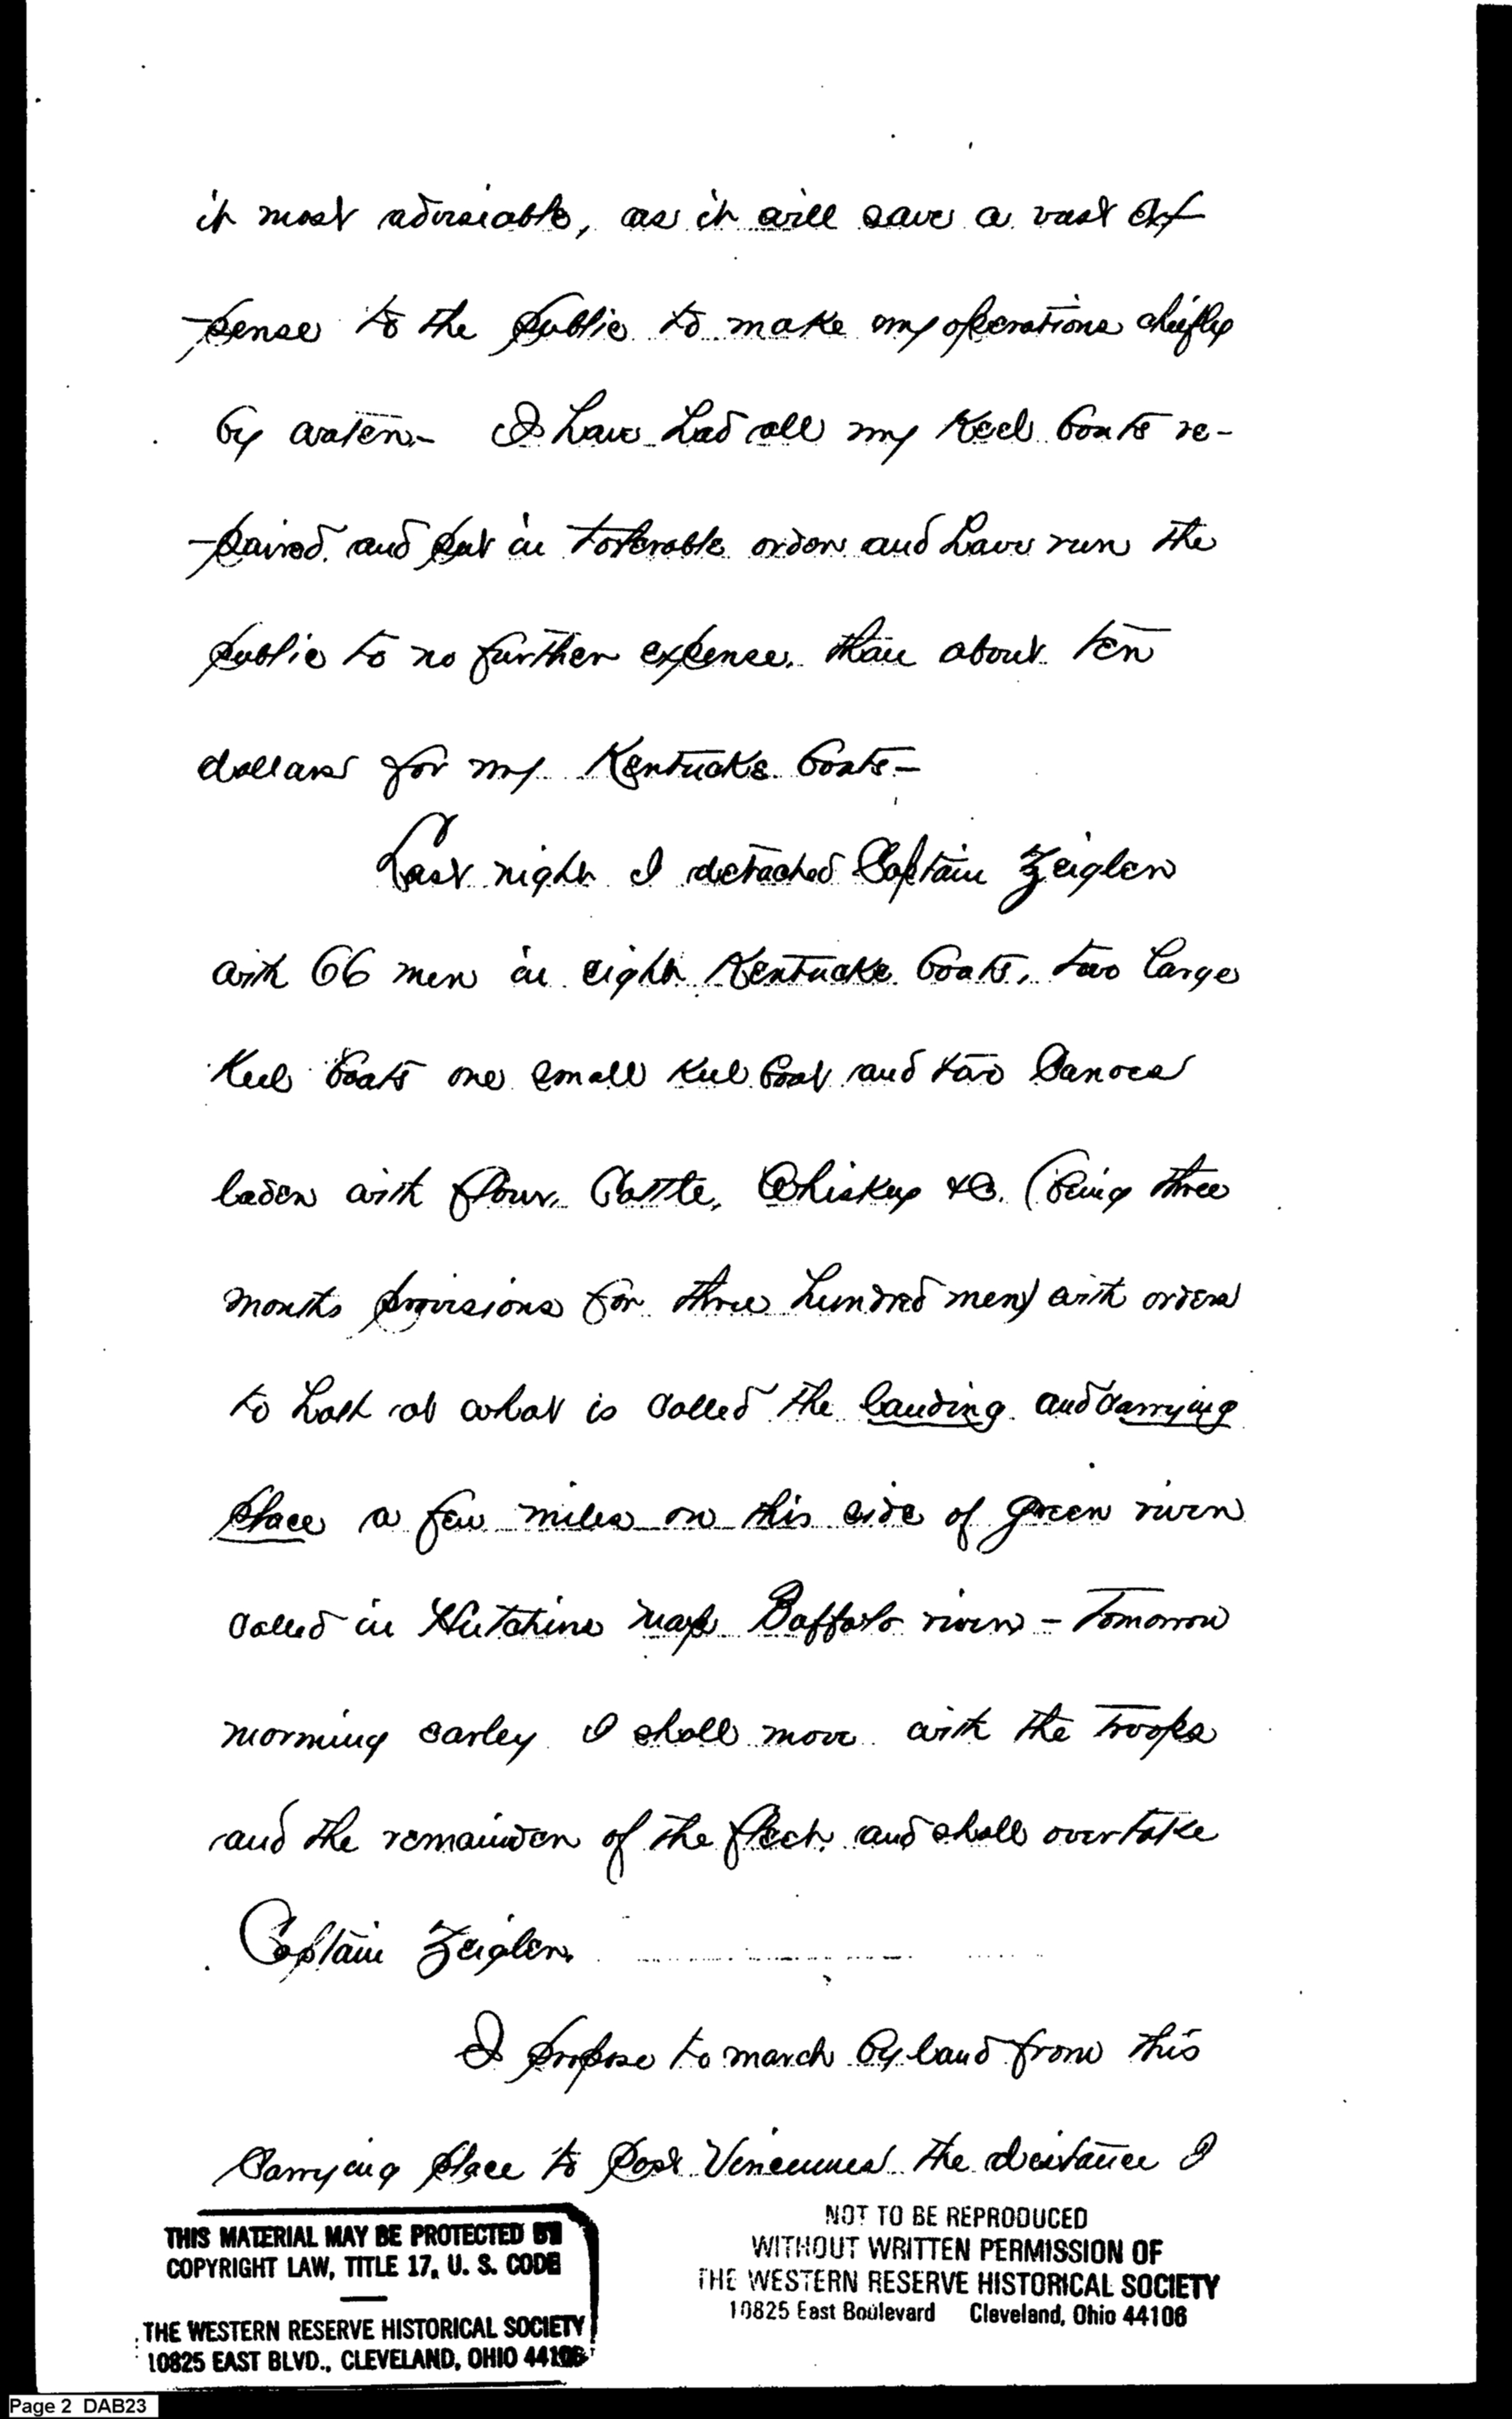 it most adviseable, as it will save a vast ex
-pense to the public to make my operations chiefly
by water.- I have had all my Keel boats re-
-paired. and put in tolerable order and have run the
public to no further expense. than about ten
dollars for my Kentucke boats-
Last night I detached Captain Zeigler
with 66 men in eight Kentucke boats, two large
Keel boats one small keel boat and two Canoes
laden with flour, Cattle, Whiskey &C. (being three
months provisions for three hundred men) with orders
to halt at what is called the landing and carrying
place a few miles on this side of green river
called in Hutchins map Buffalo river - Tomorrow
morning earley I shall move with the troops
and the remainder of the fleet. and shall overtake
Captain Zeigler.
I propose to march by land from this
Carrying place to post Vincennes the distance I
THIS MATERIAL MAY BE PROTECTED BY
COPYRIGHT LAW, TITLE 17, U. S. CODE
THE WESTERN RESERVE HISTORICAL SOCIETY
10825 EAST BLVD., CLEVELAND, OHIO 44106
NOT TO BE REPRODUCED
WITHOUT WRITTEN PERMISSION OF
THE WESTERN RESERVE HISTORICAL SOCIETY
10825 East Boulevard Cleveland, Ohio 44106
Page 2 DAB23